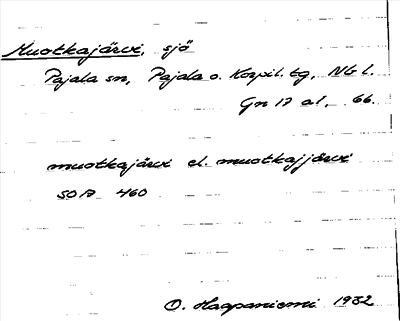 Muotkajärvi, sjö
Pajala sn, Pajala o. Korpil. tg, Nb l.
Gn 17 a1, 66.
muotkajärvi el. muotkajjärvi
SOA 460
O. Haapaniemi 1932